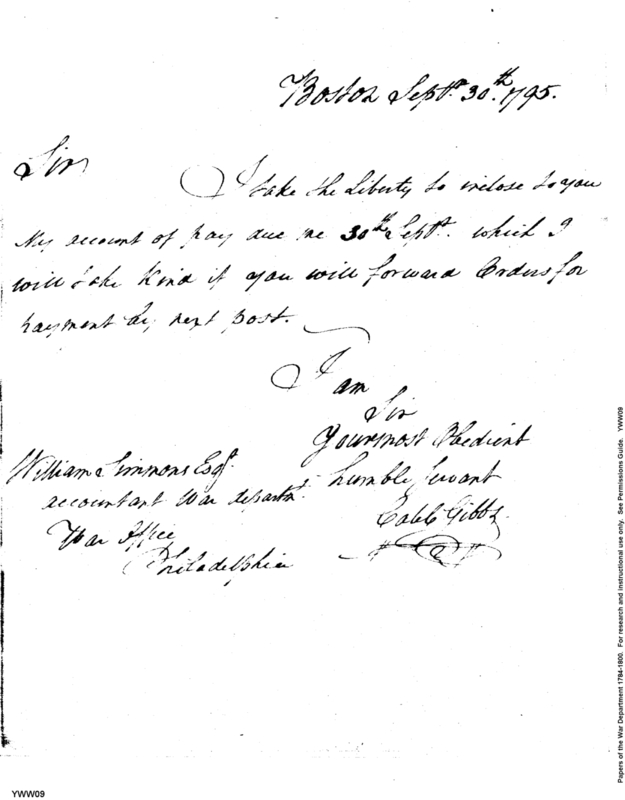 Boston Septr. 30th. 1795.
Sir
I take the Liberty to inclose to you
My account of pay due me 30th Septr. which I
will take Kind if you will forward Orders for
payment by next post.
I am
Sir
Your most Obedient
humble servant
Caleb Gibbs
William Simmons Esqr.
accountant War departmt.
War Office
Philadelphia
Papers of the War Department 1784-1800. For research and instructional use only. See Permissions Guide. YWW09
YWW09